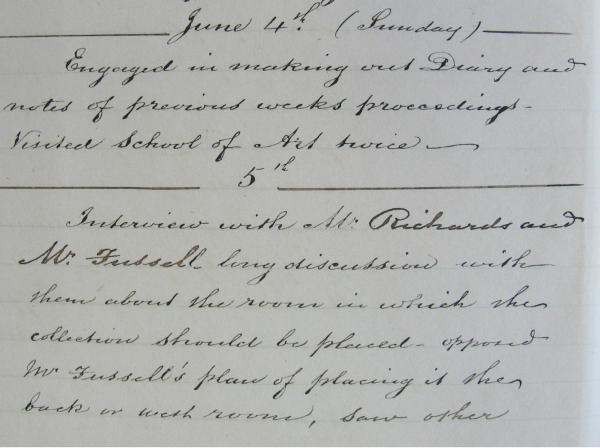 June 4th. (Sunday)
Engaged in making out Diary and
notes of previous weeks proceedings -
Visited School of Art twice —
5th
Interview with Mr. Richards and
Mr. Fussell - long discussion with
them about the room in which the
collection should be placed - opposed
Mr Fussell's plan of placing it the
back or west room, saw other